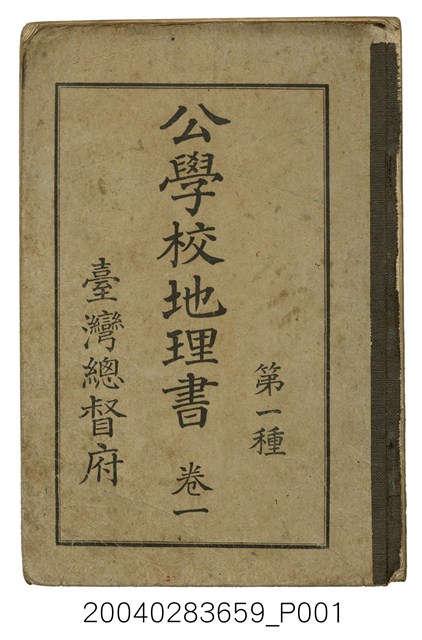 第一種
公學校地理書 卷一
臺灣總督府
20040283659_P001